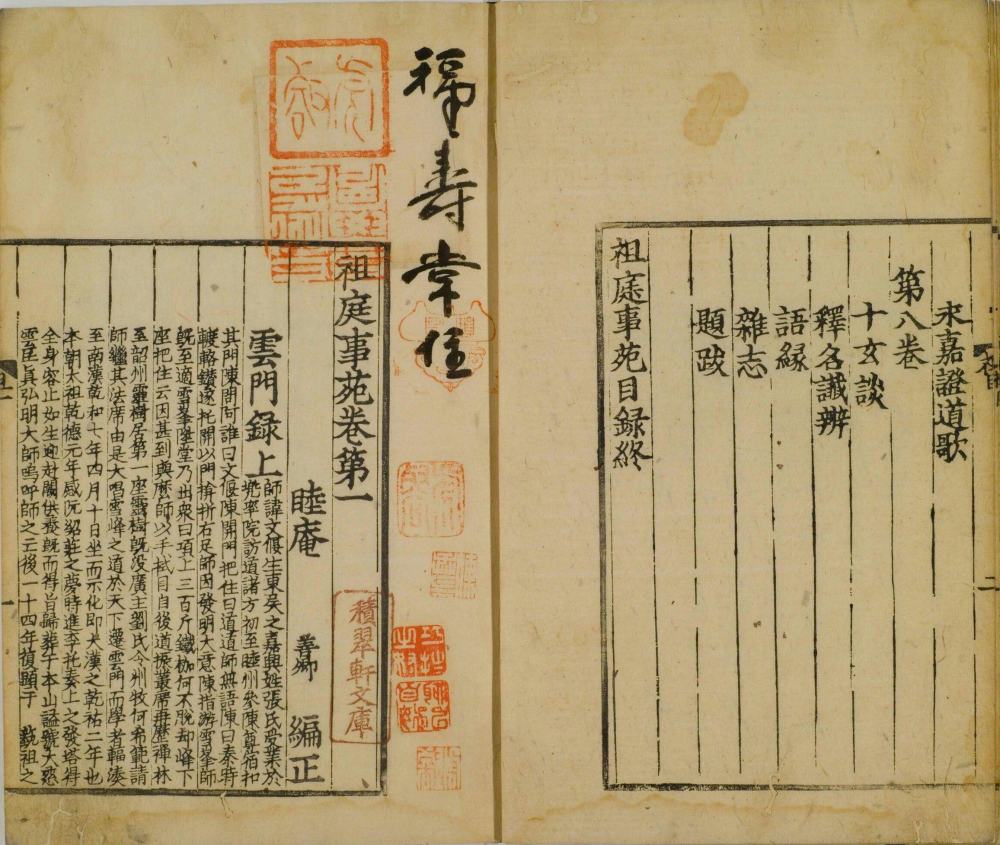 永嘉證道歌
第八卷
十玄談
釋名讖辨
語緣
雜志
題䟦
祖庭事苑目録終
二
福壽常住
積翠軒文庫
祖庭事苑卷第一
睦庵 善卿 編正
雲門録上
師諱文偃生東吳之嘉興姓張氏受業於
兜率院訪道諸方初至睦州參陳尊宿扣
其門陳問阿誰曰文偃陳開門把住曰道道師無語陳曰秦時
𨍏轢鑽遂托開以門揜折右足師因發明大意陳指游雪峯師
旣至適雪峯陞堂乃出衆曰項上三百斤鐵枷何不脫却峰下
座把住云因甚到與麽師以手拭目自後道振叢席再歷禪林
至韶州靈樹居第一座靈樹旣没廣主劉氏令州牧何希範請
師繼其法席由是大唱雪峰之道於天下遷雲門而學者輻湊
至南漢乾和七年四月十日坐而示化即大漢之乾祐二年也
本朝太祖乾德元年感阮紹莊之夢時進李托奏上之發塔得
全身容止如生迎赴闕供養旣而得旨歸葬于本山謚號大慈
雲匡眞弘明大師嗚呼師之云後一十四年復顯于 藝祖之
一